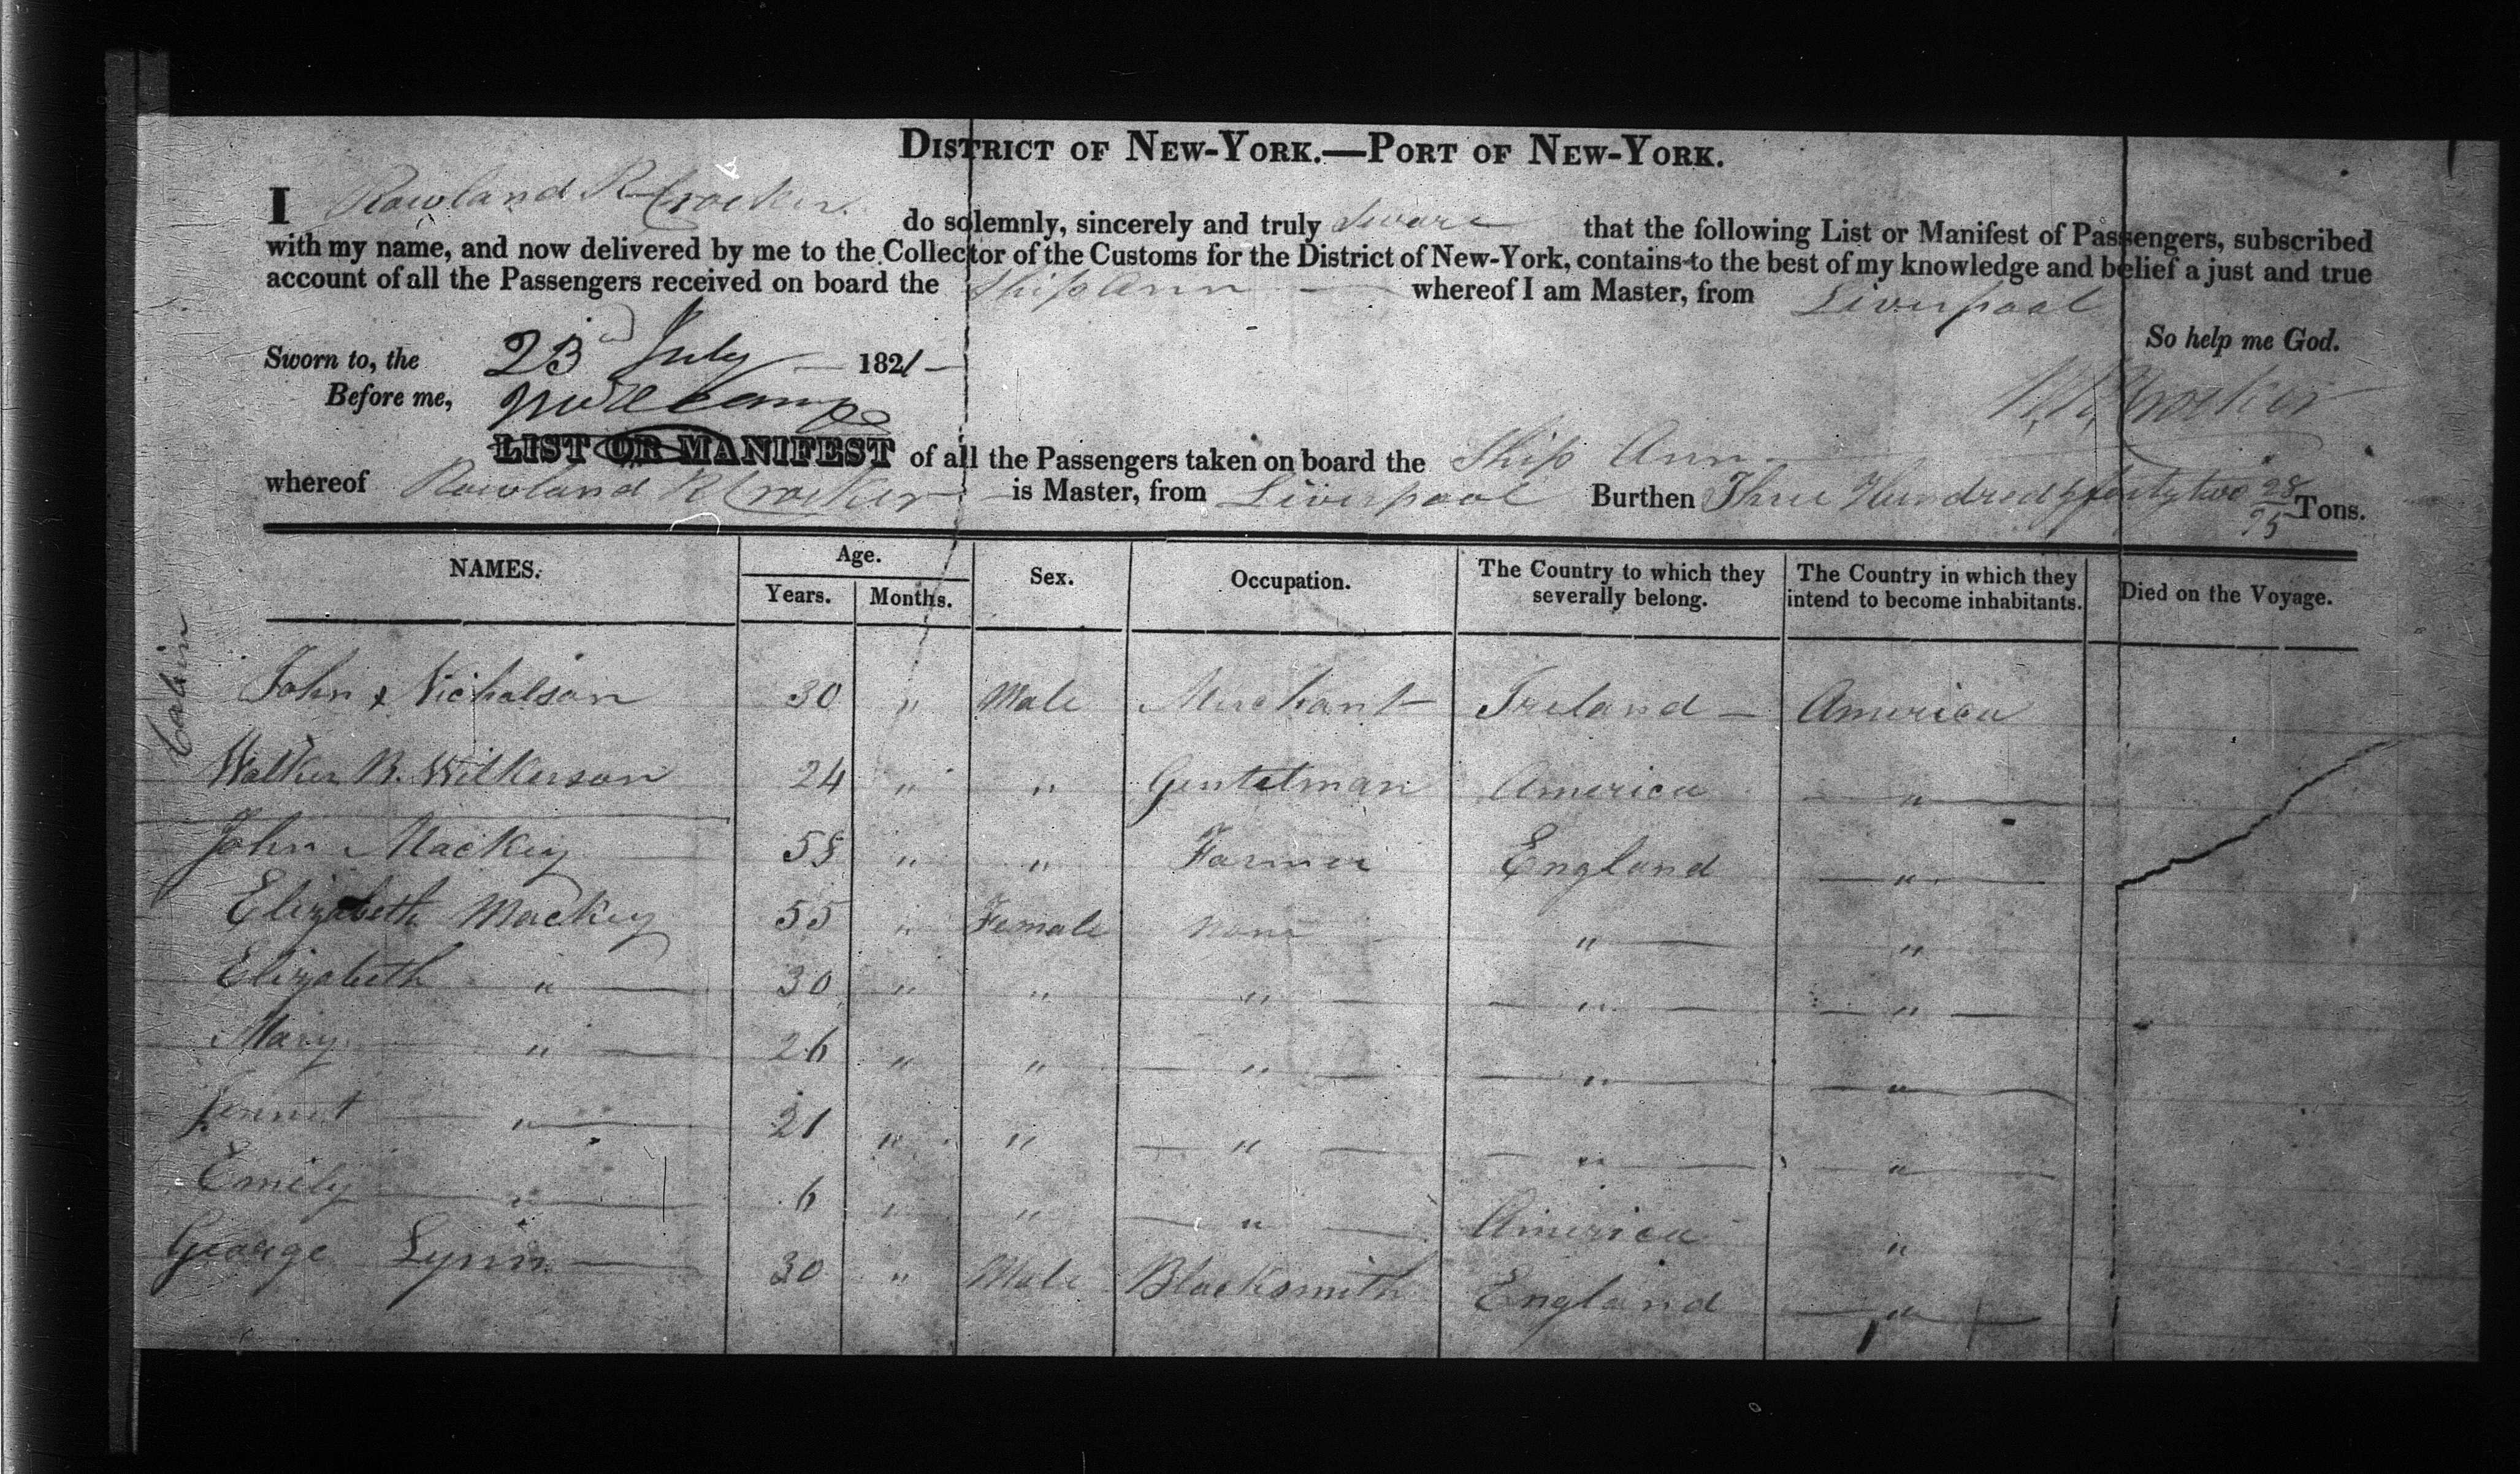 DISTRICT OF NEW-YORK.—PORT OF NEW-YORK.
I Rowland R Crocker. do solemnly, sincerely and truly Sware that the following List or Manifest of Passengers, subscribed
with my name, and now delivered by me to the Collector of the Customs for the District of New-York, contains to the best of my knowledge and belief a just and true
account of all the Passengers received on board the Ship Ann — whereof I am Master, from Liverpool
So help me God.
Sworn to, the 23d July — 1821 —
Before me,
R. R. Crocker
LIST OR MANIFEST of all the Passengers taken on board the Ship Ann —
whereof Rowland R Crocker — is Master, from Liverpool Burthen Three Hundred & forty two 28/95 Tons.
NAMES. Age. Sex. Occupation. The Country to which they severally belong. The Country in which they intend to become inhabitants. Died on the Voyage.
Years. Months.
Cabin
John Nicholson 30 " Male Merchant Ireland — America
Walker B. Wilkerson 24 " " Gentelman America "
John Mackey 55 " " Farmer England "
Elizabeth Mackey 55 " Female None " "
Elizabeth " 30 " " " " "
Mary " 26 " " " " "
Jennet " 21 " " " " "
Emily " 6 " " " America "
George Lynn 30 " Male Blacksmith England "